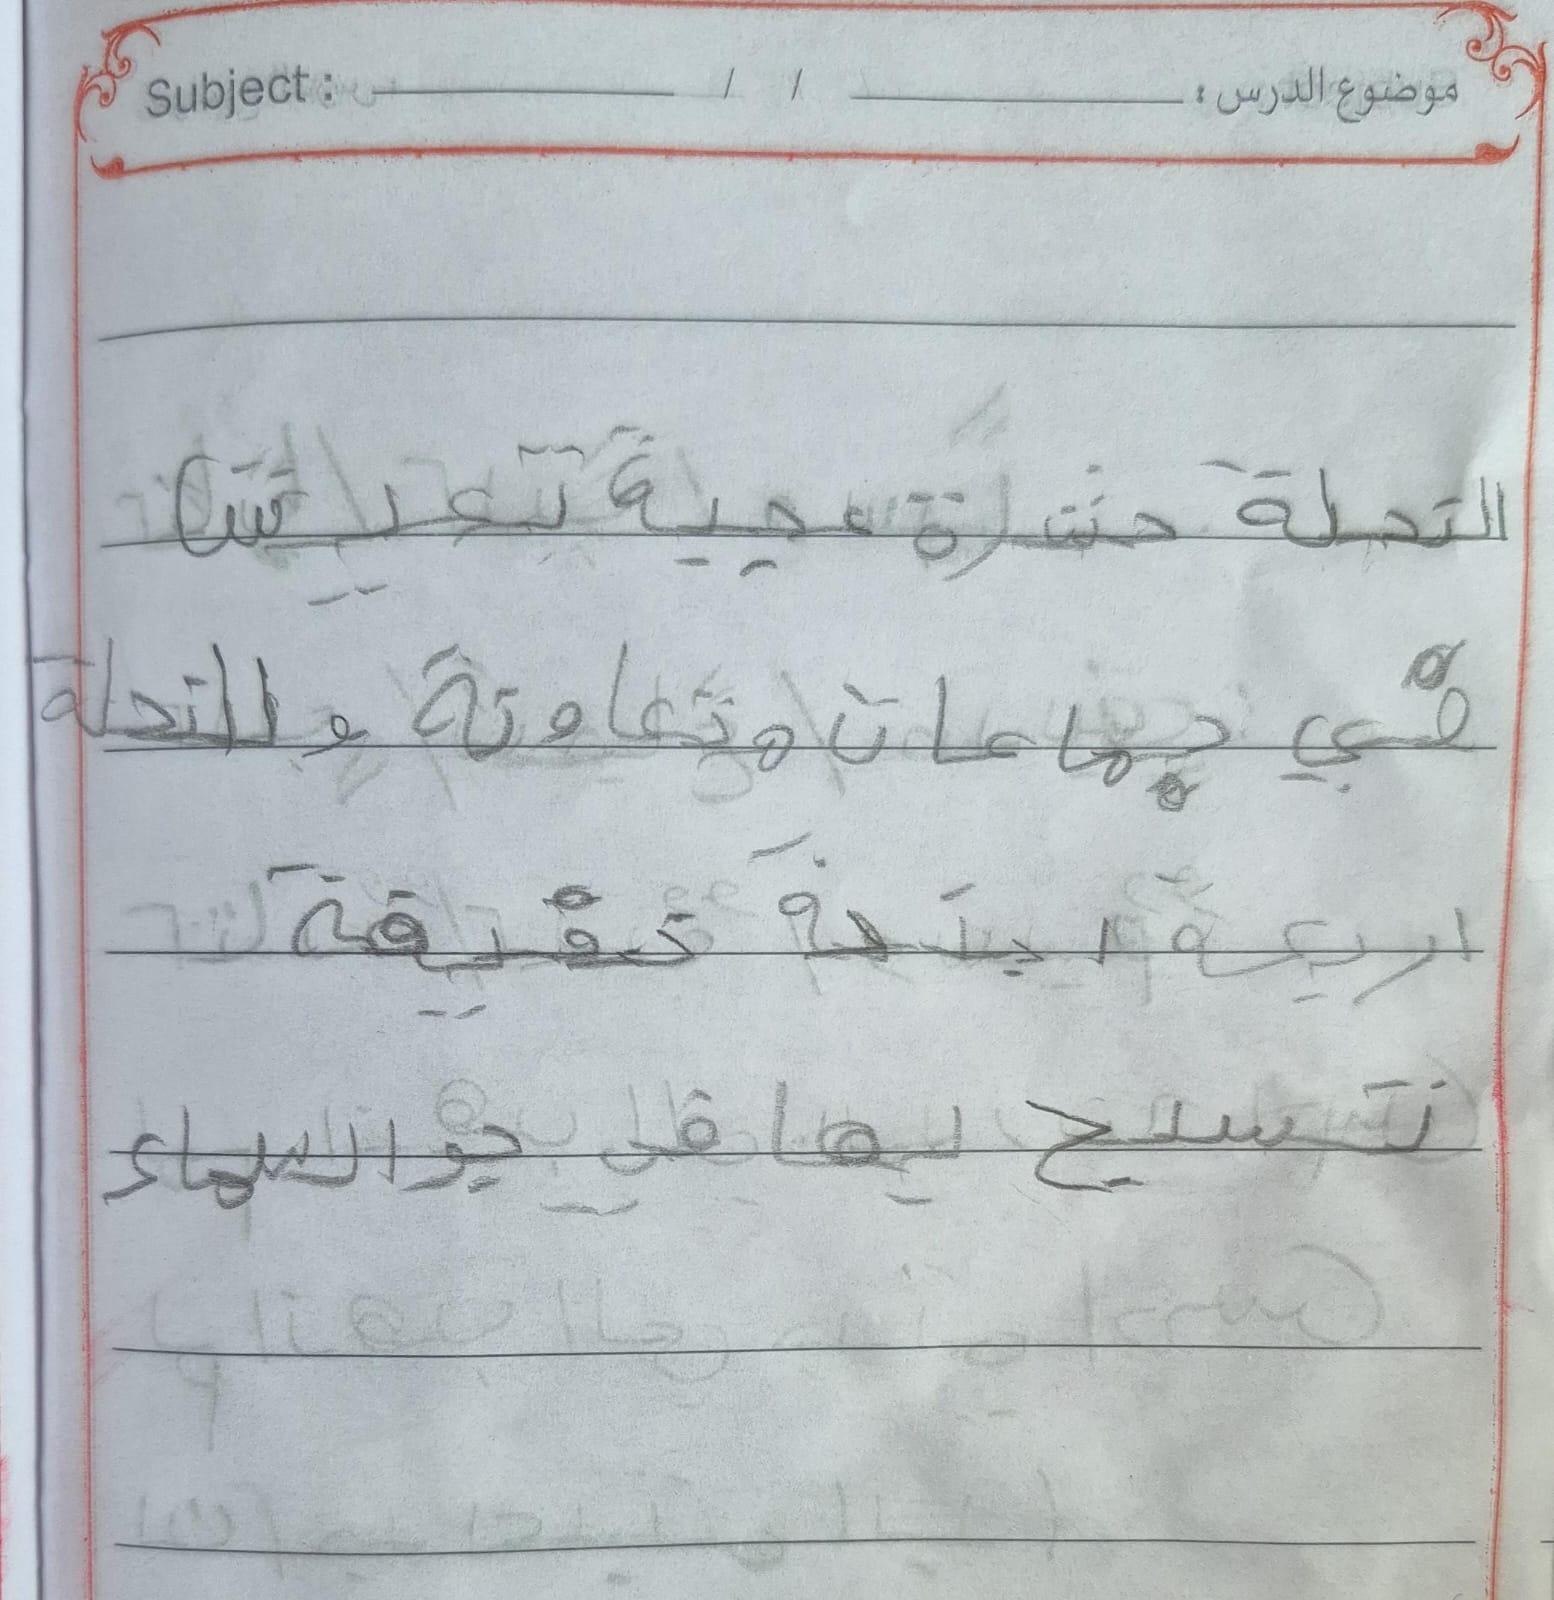 موضوع الدرس : / / Subject :
النحلة حشرة عجيبة تعيش
في جماعات متعاونة و للنحلة
اربعة اجنحة رقيقة
تسبح بها في جو السماء